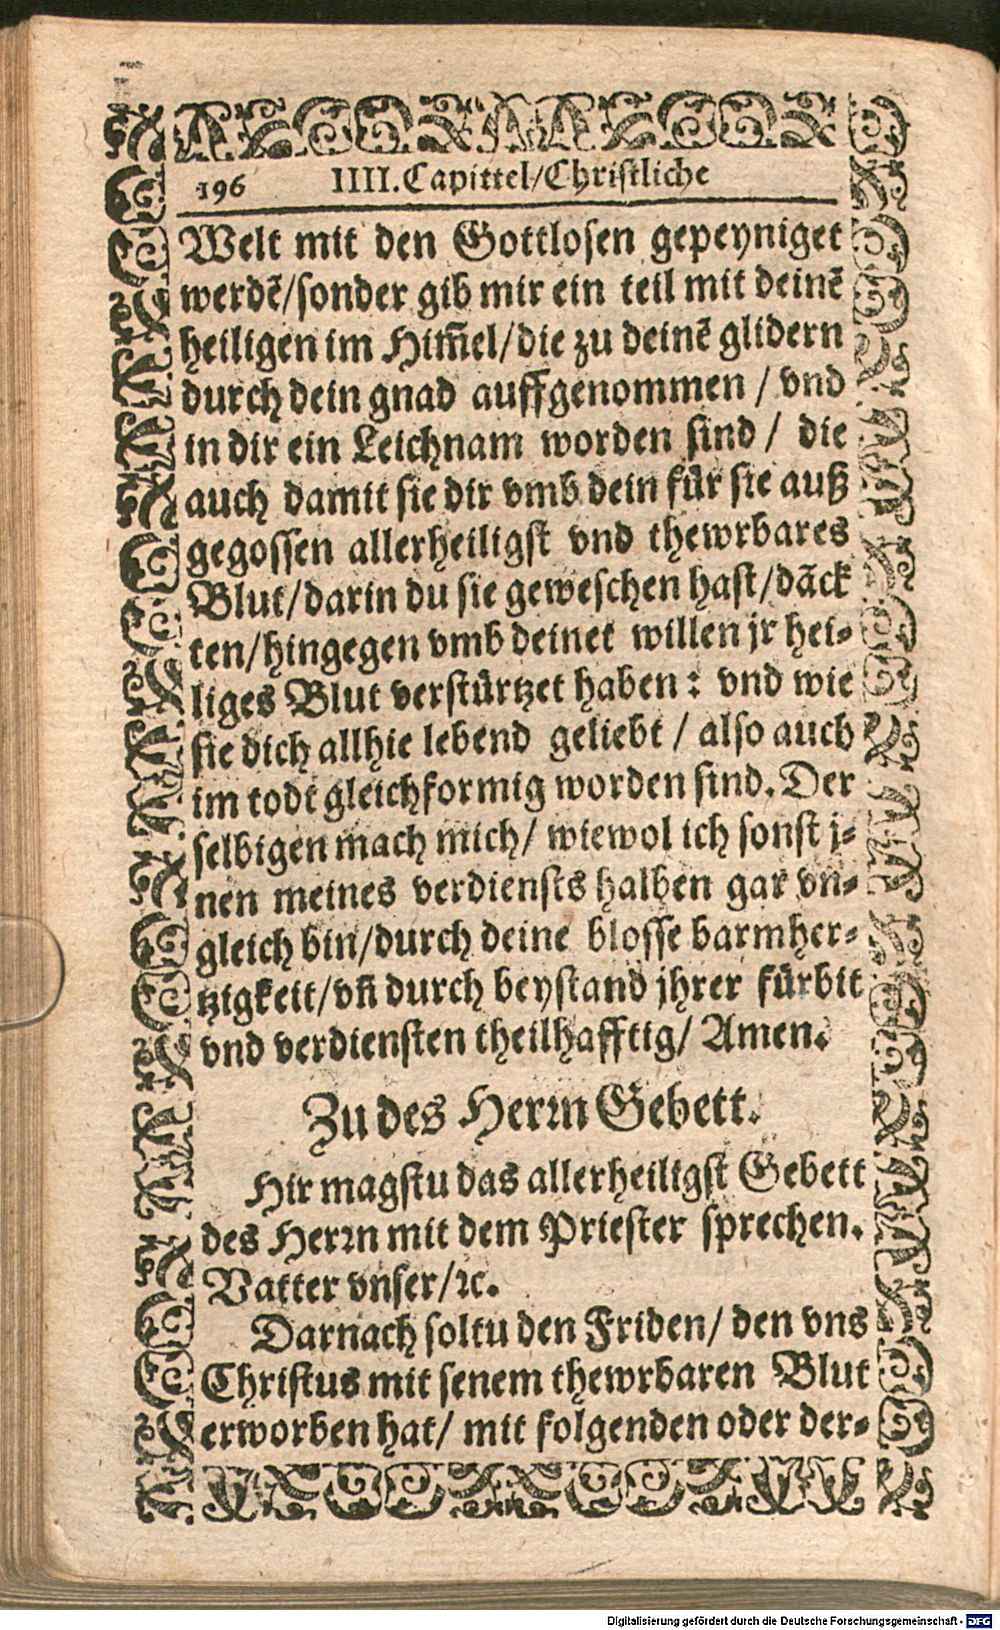 196 IIII. Capittel/Christliche
Welt mit den Gottlosen gepeyniget
werdẽ/sonder gib mir ein teil mit deinẽ
heiligen im Him̃el/die zu deinẽ glidern
durch dein gnad auffgenommen / vnd
in dir ein Leichnam worden sind / die
auch damit sie dir vmb dein für sie auß
gegossen allerheiligst vnd thewrbares
Blut/darin du sie geweschen hast/dãck
ten/hingegen vmb deinet willen jr hei-
liges Blut verstürtzet haben: vnd wie
sie dich allhie lebend geliebt / also auch
im todt gleichformig worden sind. Der
selbigen mach mich/ wiewol ich sonst j-
nen meines verdiensts halben gar vn-
gleich bin/durch deine blosse barmher-
tzigkeit/vñ durch beystand jhrer fürbit
vnd verdiensten theilhafftig/ Amen.
Zu des Herꝛn Gebett.
Hir magstu das allerheiligst Gebett
des Herꝛn mit dem Priester sprechen.
Vatter vnser/ꝛc.
Darnach soltu den Friden/ den vns
Christus mit senem thewrbaren Blut
erworben hat/ mit folgenden oder der-
Digitalisierung gefördert durch die Deutsche Forschungsgemeinschaft - DFG